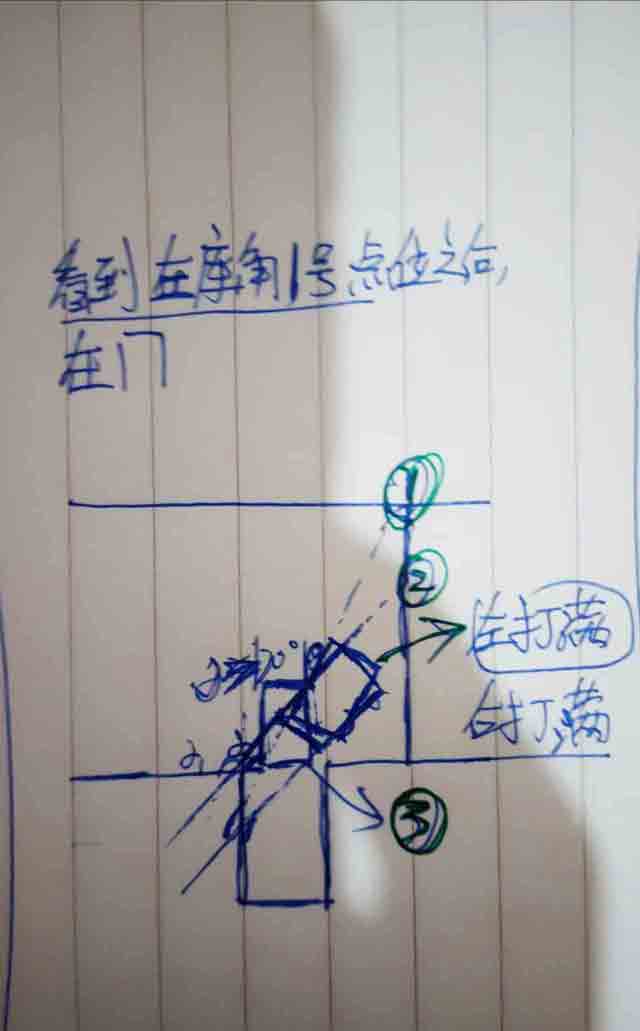 看到左库角1号点位之后,
在门
1
2
左打满
右打满
3